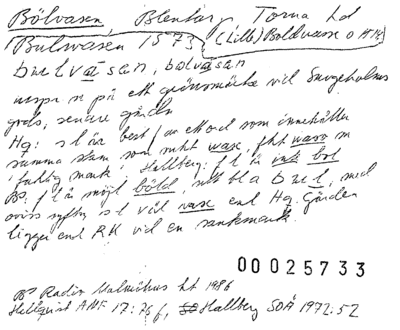 Bölvasen, Blentarp, Torna hd
Bulwasen 1573 (Lilla) Boldvasse o HMK
bœlvasan, bölvasan
urspr n på ett gränsmärke vid Snogeholms
gods, senare gården
Hq: sl är best f av ett ord som innehåller
samma stam som mht wase, fht waso m
'fuktig mark'. Hallberg: fl är inte bol
BS: fl är möjl böld, mht bla med
oviss syftn sl väl vase enl Hq. Gården
ligger enl RK vid en sankmark.
00025733
BS Radio Malmöhus ht 1986
Hellquist ANF 17:76 f, Hallberg SOÄ 1972:52